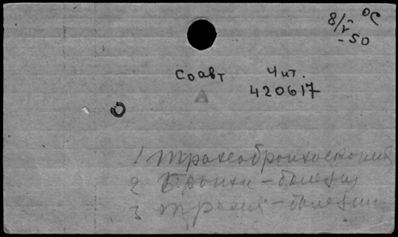 8/V ОС
-50
Соавт Чит.
А 420617
1 Трахеобронхоскопия
2 Бронхи - болезни
3 Трахея - болезни